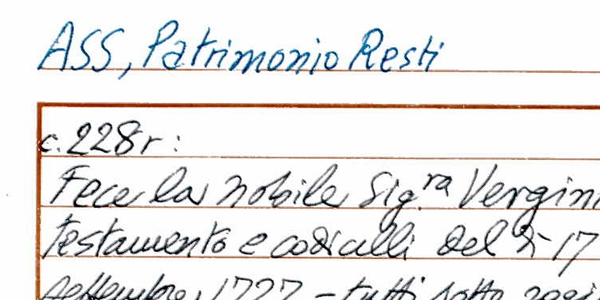 ASS, Patrimonio Resti
c. 228r:
Fece la nobile Sig.ra Vergin
testamento e codicilli del dì 17
settembre 1727 - tutti sotto